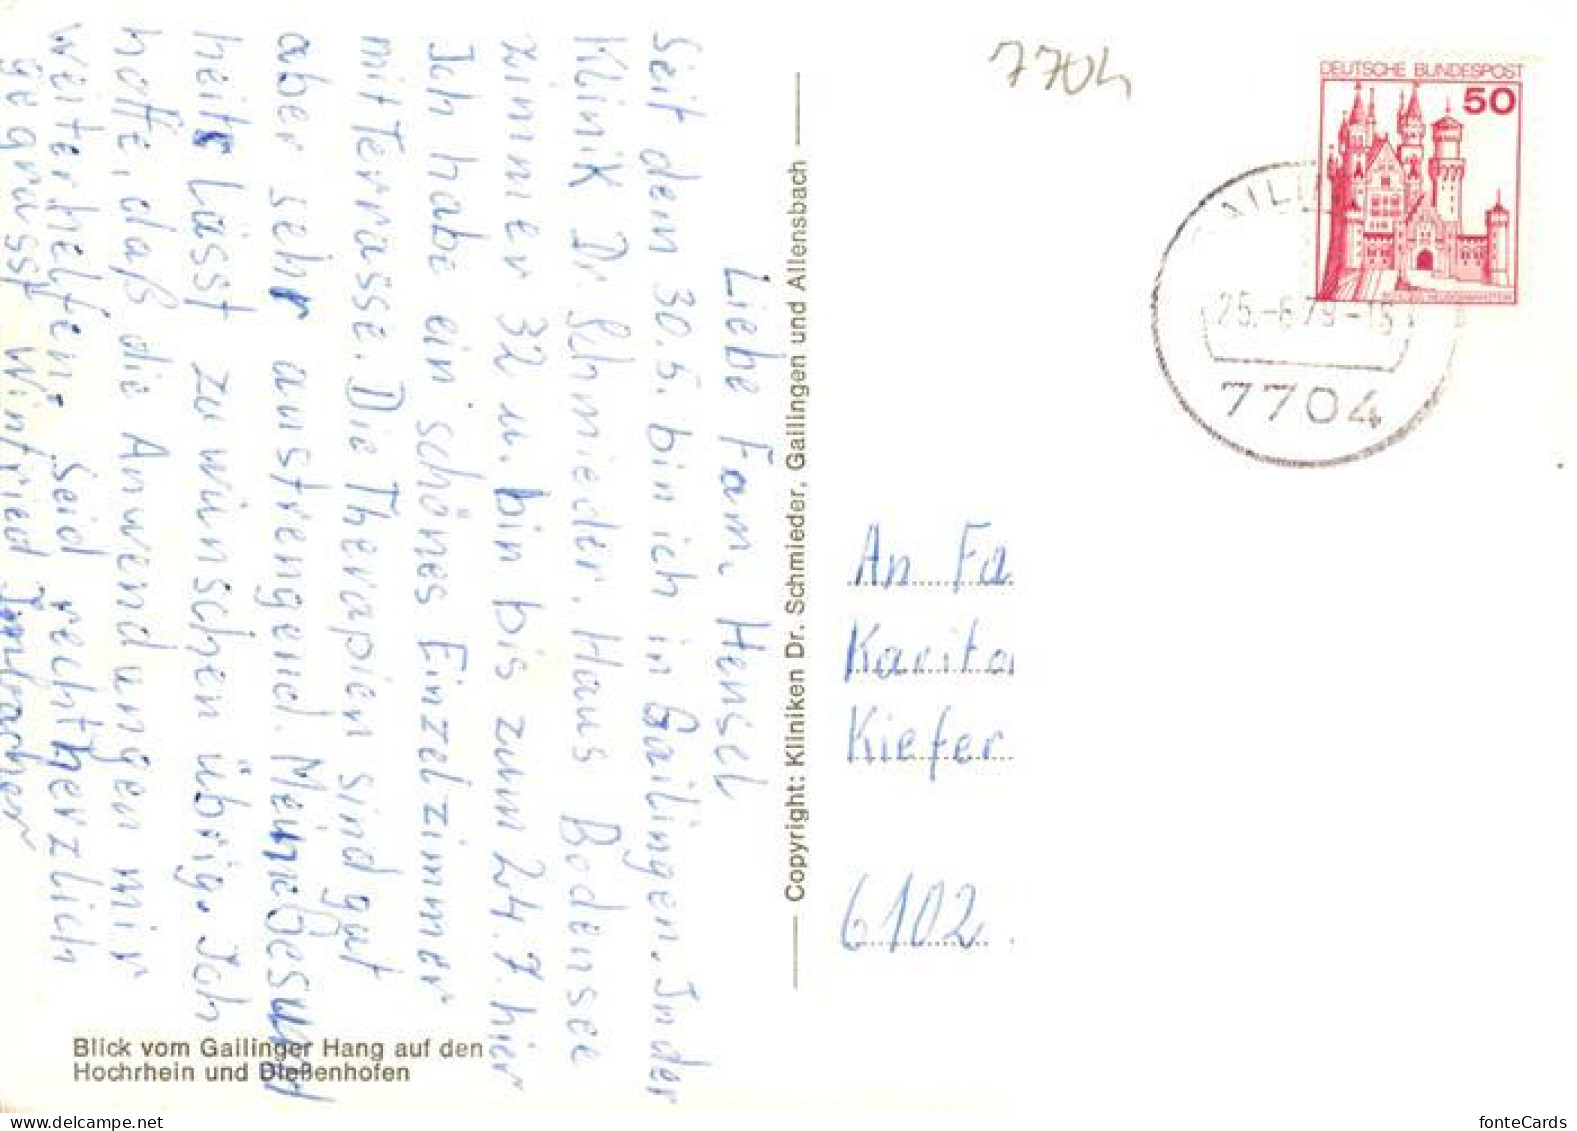 Liebe Fam. Hensel
Seit dem 30.5. bin ich in Gailingen. In der
Klinik Dr. Schmieder. Haus Bodensee
zimmer 32 u. bin bis zum 24.7. hier
Ich habe ein schönes Einzelzimmer
mit Terrasse. Die Therapien sind gut
aber sehr anstrengend. Meine Gesund
heit lässt zu wünschen übrig. Ich
hoffe, daß die Anwendungen mir
weiterhelfen. Seid recht herzlich
gegrüsst Winfried
Blick vom Gailinger Hang auf den
Hochrhein und Dießenhofen
Copyright: Kliniken Dr. Schmieder, Gailingen und Allensbach
7704
DEUTSCHE BUNDESPOST
50
25.-6.79-15
7704
An Fa
Kiefer
6102
fonteCards